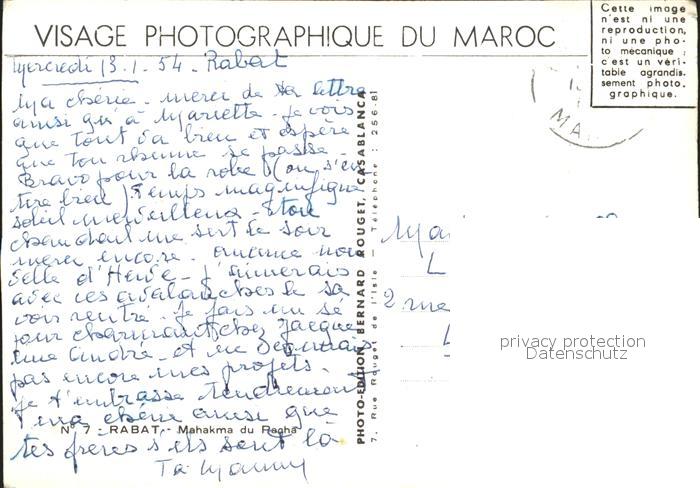 VISAGE PHOTOGRAPHIQUE DU MAROC
Cette image
n'est ni une
reproduction,
ni une pho-
to mécanique ;
c'est un véri-
table agrandis-
sement photo-
graphique.
Mercredi 13.1.54. Rabat
Ma chérie. merci de ta lettre
ainsi qu'à Mariette. je vois
que tout va bien et espère
que ton rhume se passe.
Bravo pour la robe (on s'en
tire bien) Temps magnifique
soleil merveilleux. ton
chandail me sert le soir
merci encore. aucune nou
velle d'Hervé. j'aimerais
avec ces avalanches le sa
voir rentré. je fais un sé
jour charmant chez Jacque
line André. et ne
pas encore mes projets.
je t'embrasse tendrement
ma chérie ainsi que
tes frères s'ils sont là
Ta Mammy
N° 7 - RABAT - Mahakma du Pacha
PHOTO-EDITION BERNARD ROUGET, CASABLANCA
7, Rue Rouget de l'Isle - Téléphone : 256-81
MA
Ma
L
2 rue
L
privacy protection
Datenschutz